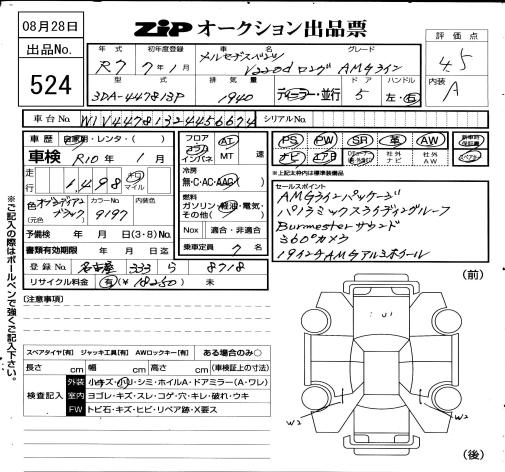 08月28日
ZIP オークション出品票
出品No.
524
年式 初年度登録 車名 グレード
R7 7年1月 メルセデスベンツ V220d ロング AMGライン
評価点
4.5
内装
A
型式 排気量 ドア ハンドル
3DA-447813P 1940 ディーラー・並行 5 左・右
車台No. W1V44781324456674 シリアルNo.
車歴 自家用・レンタ・( )
車検 R10年 1月
走行 1,498 キロ マイル
色 オブシディアンブラック (元色 カラーNo. 9197 内装色
予備検 年 月 日(3・8)No.
書類有効期限 年 月 日迄
登録No. 名古屋 333 ら 8718
リサイクル料金 有(¥18250) 未
フロア コラム インパネ AT MT 速
冷房 無・C・AC・AAC
燃料 ガソリン・軽油・電気・その他( )
Nox 適合・非適合
乗車定員 7 名
PS PW SR 革 AW
ナビ エアB 社外ナビ 社外AW
新車時保証書
スペアキー
※上記太枠内は標準装備品
セールスポイント
AMGラインパッケージ
パノラミックスライディングルーフ
Burmesterサウンド
360°カメラ
19インチAMGアルミホイール
[注意事項]
スペアタイヤ[有] ジャッキ工具[有] AWロックキー[有] ある場合のみ○
長さ cm 幅 cm 高さ cm (車検証上の寸法)
検査記入
外装 小キズ・小凹・シミ・ホイルA・ドアミラー(A・ワレ)
室内 ヨゴレ・キズ・スレ・コゲ・穴・キレ・破れ・ウキ
FW トビ石・キズ・ヒビ・リペア跡・X要ス
※ご記入の際はボールペンで強くご記入下さい。
(前)
U1
W2
W2
(後)